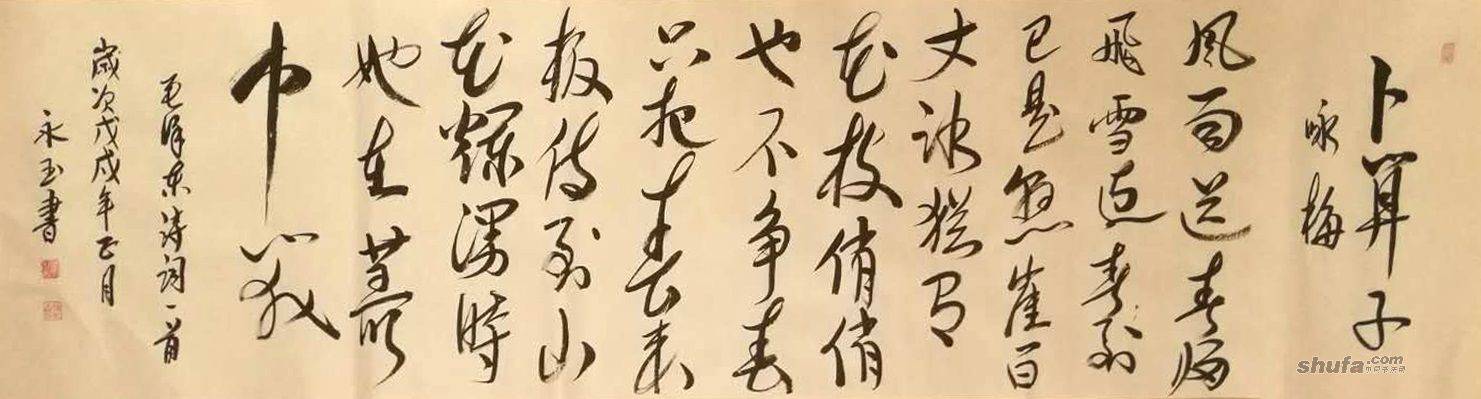 卜算子
咏梅
風雨送春归
飛雪迎春到
已是悬崖百
丈冰犹有
花枝俏俏
也不争春
只把春来
报待到山
花爛漫時
她在叢
中笑
毛泽东诗词一首
歲次戊戌年正月
永玉書
shufa.com